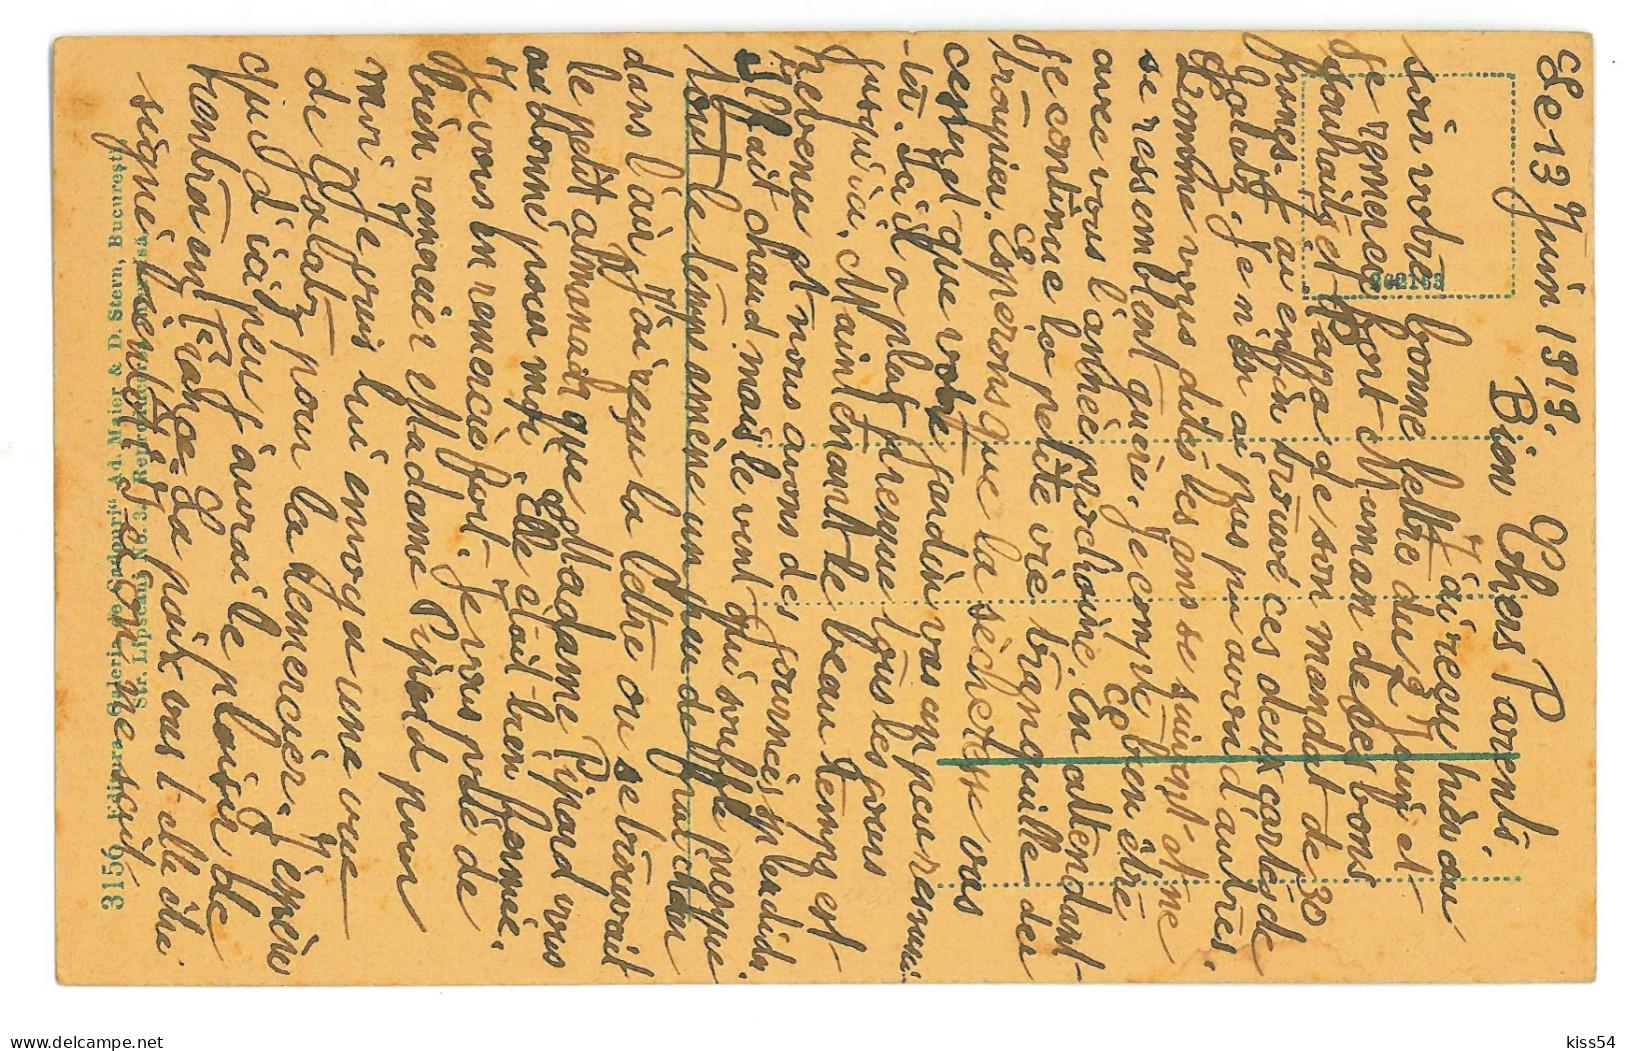 Le 13 Juin 1919.
Bien Chers Parents.
J'ai reçu hier au
soir votre bonne lettre du 2 Juin et
je remercie fort Maman de ses bons
souhaits et Papa de son mandat de 30
francs. J'ai enfin trouvé ces deux cartes de
Galatz. Je n'en ai pas pu avoir d'autres.
Comme vous dites les ans se suivent et ne
se ressemblent guère. Je compte bien être
avec vous l'année prochaine. En attendant
je continue la petite vie tranquille du
troupier. Espérons que la sécheresse va
cesser et que votre jardin va un peu remuni
-tôt. Ici il a plu presque tous les jours
jusqu'ici. Maintenant le beau temps est
revenu et nous avons des journées splendides.
Il fait chaud mais le vent qui souffle presque
tout le temps amène un peu de fraicheur
dans l'air. J'ai reçu la lettre où se trouvait
le petit almanach que Madame Pipard vous
a donné pour moi. Elle était bien fermée.
Je vous en remercie fort. Je vous prie de
bien remercier Madame Pipard pour
moi. Je vais lui envoyer une vue
de Galatz pour la remercier. J'espère
que d'ici peu j'aurai le plaisir de
rentrer en France. La paix va t-elle être
signée bientôt? Je compte que oui.
262163
3156 Editura Galeria de Cadouri“ Ad. Maier & D. Stern, Bucuresti
Str. Lipscani No. 3. Reproducerea interzisă
kiss54